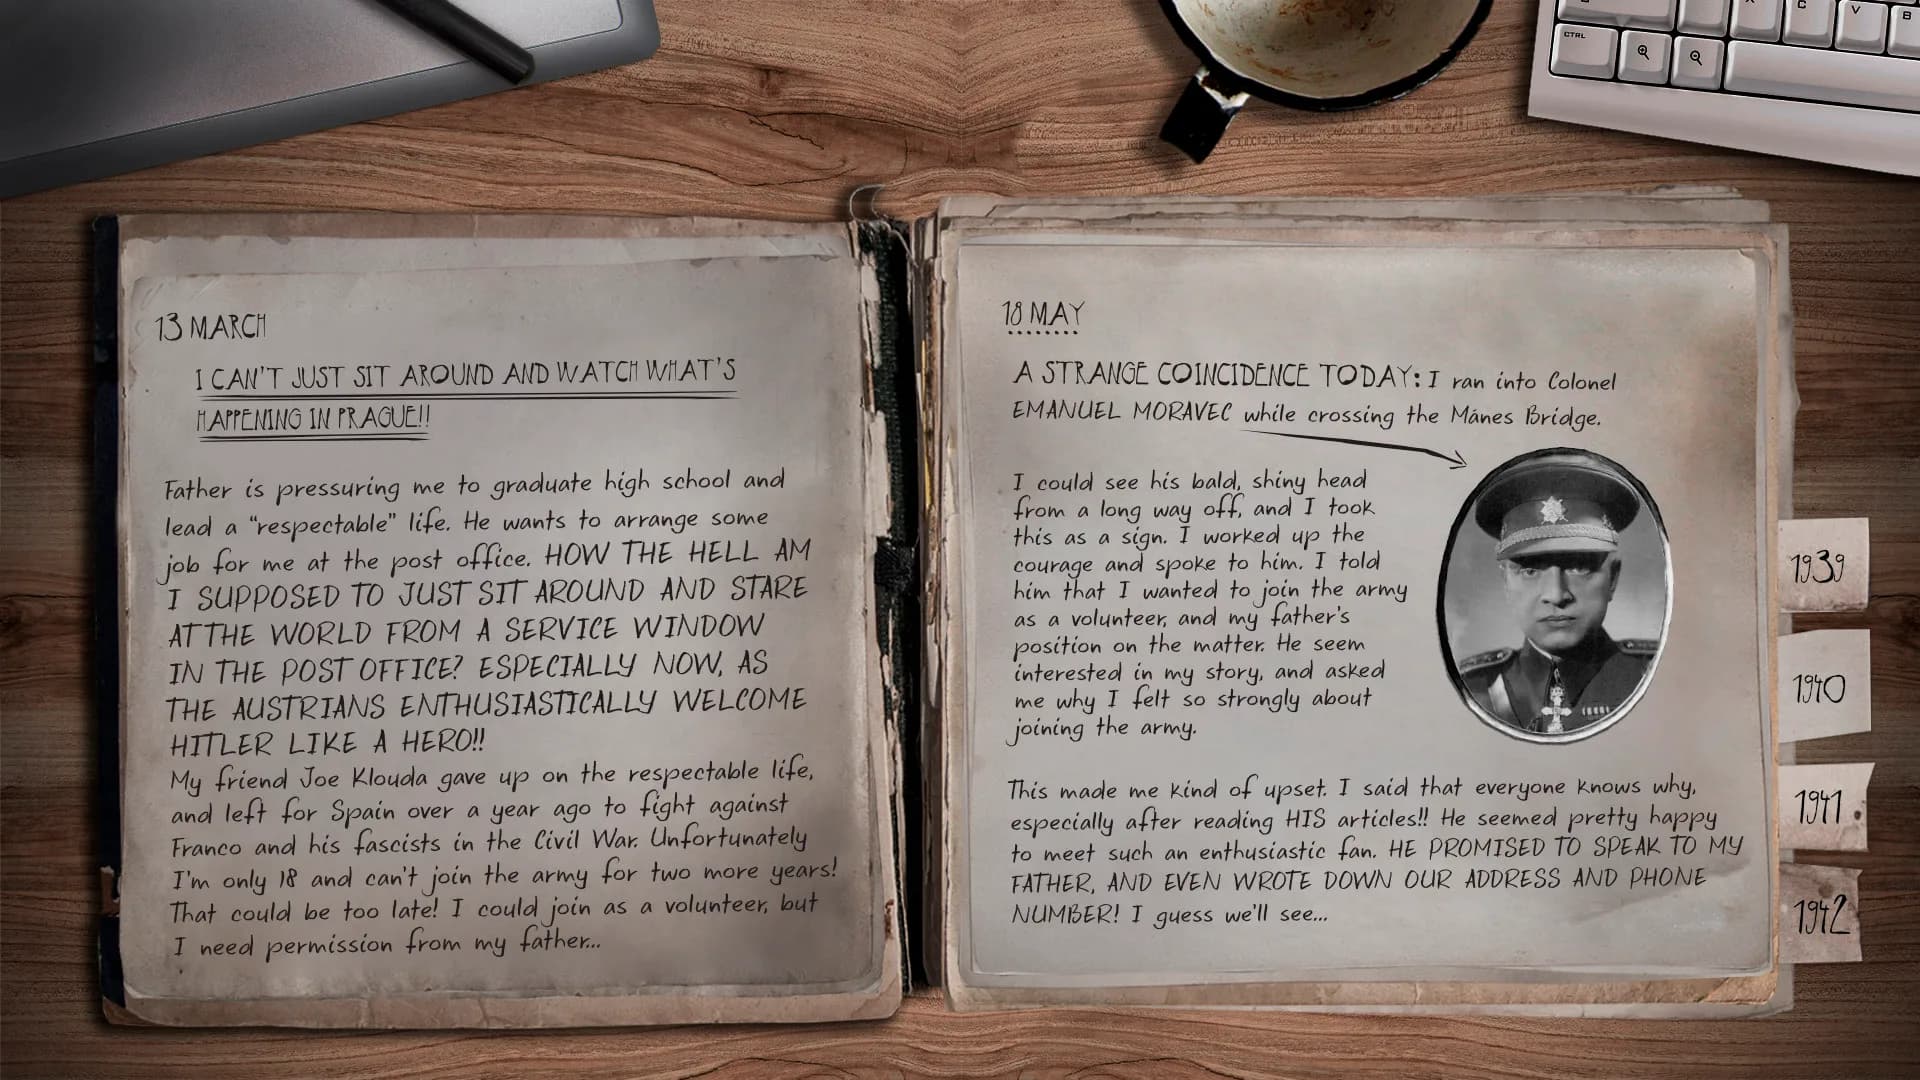 CTRL
X
C
V
B
13 MARCH
I CAN'T JUST SIT AROUND AND WATCH WHAT'S
HAPPENING IN PRAGUE!!
Father is pressuring me to graduate high school and
lead a "respectable" life. He wants to arrange some
job for me at the post office. HOW THE HELL AM
I SUPPOSED TO JUST SIT AROUND AND STARE
AT THE WORLD FROM A SERVICE WINDOW
IN THE POST OFFICE? ESPECIALLY NOW, AS
THE AUSTRIANS ENTHUSIASTICALLY WELCOME
HITLER LIKE A HERO!!
My friend Joe Klouda gave up on the respectable life,
and left for Spain over a year ago to fight against
Franco and his fascists in the Civil War. Unfortunately
I'm only 18 and can't join the army for two more years!
That could be too late! I could join as a volunteer, but
I need permission from my father...
18 MAY
A STRANGE COINCIDENCE TODAY: I ran into Colonel
EMANUEL MORAVEC while crossing the Mánes Bridge.
I could see his bald, shiny head
from a long way off, and I took
this as a sign. I worked up the
courage and spoke to him. I told
him that I wanted to join the army
as a volunteer, and my father's
position on the matter. He seem
interested in my story, and asked
me why I felt so strongly about
joining the army.
This made me kind of upset. I said that everyone knows why,
especially after reading HIS articles!! He seemed pretty happy
to meet such an enthusiastic fan. HE PROMISED TO SPEAK TO MY
FATHER, AND EVEN WROTE DOWN OUR ADDRESS AND PHONE
NUMBER! I guess we'll see...
1939
1940
1941
1942